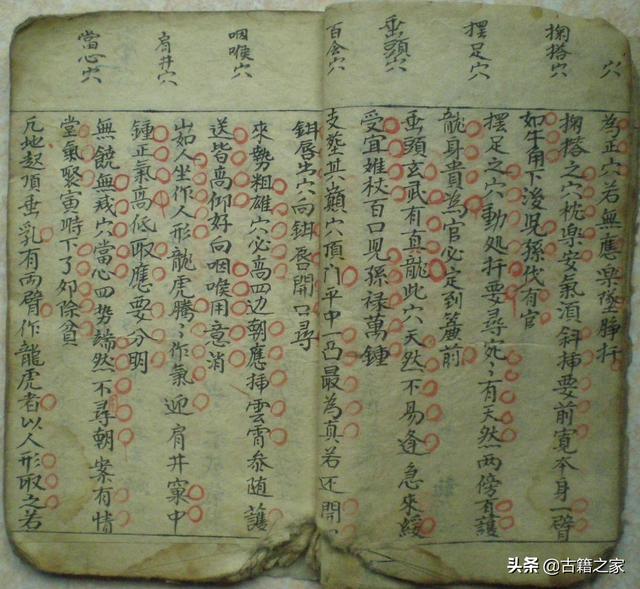 穴
掬搭穴
擺足穴
垂頭穴
百会穴
咽喉穴
肩井穴
當心穴
為正穴若無應樂墜脾扦
掬搭之穴枕樂安氣湏斜揷要前寬夲身一臂
如牛角下後児孫代有官
擺足之穴動処扦要尋宛〻有天然两傍有護
龍身貴為官必定到簾前
垂頭玄武有直龍此穴天然不易逢急來緩
受宜雉杖百口児孫禄萬鍾
支蕐其巔穴頂门平中一凸最為真若还開
鉗唇出穴向鉗唇開口尋
來勢粗雄穴必高四边朝應揷雲霄叅随護
送皆高仰好向咽喉用意消
山如人坐作人形龍虎騰〻作氣迎肩井窠中
鍾正氣高低取應要分明
無饒無㦯穴當心四势端然不尋朝案有情
堂氣聚寅時下了夘除貧
凡地起頂垂乳有両臂作龍虎者以人形取之若
头条@古籍之家